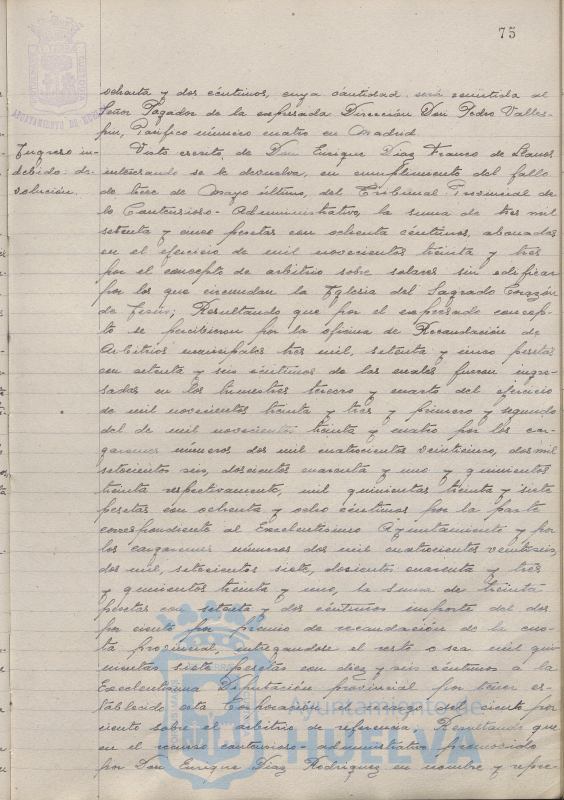 75
ochenta y dos céntimos, cuya cantidad será remitida al
Señor Pagador de la expresada Dirección Don Pedro Valles-
pin, Pacífico número cuatro en Madrid
Ingreso in-
debido: de-
volución.
Visto escrito, de Don Enrique Díaz Franco de Llanos
interesando se le devuelva, en cumplimiento del fallo
de trece de Mayo último, del Tribunal Provincial de
lo Contencioso-Administrativo, la suma de tres mil
setenta y cinco pesetas con ochenta céntimos, abonadas
en el ejercicio de mil novecientos treinta y tres
por el concepto de arbitrio sobre solares sin edificar
por los que circundan la Iglesia del Sagrado Corazón
de Jesús; Resultando que por el expresado concep-
to se percibieron por la oficina de Recaudación de
Arbitrios municipales tres mil, setenta y cinco pesetas
con setenta y seis céntimos de las cuales fueron ingre-
sadas en los trimestres tercero y cuarto del ejercicio
de mil novecientos treinta y tres y primero y segundo
del de mil novecientos treinta y cuatro por los car-
garemes números dos mil cuatrocientos veinticinco, dos mil
setecientos seis, doscientos cuarenta y uno y quinientos
treinta respectivamente, mil quinientas treinta y siete
pesetas con ochenta y ocho céntimos por la parte
correspondiente al Excelentísimo Ayuntamiento y por
los cargaremes números dos mil cuatrocientos veintiseis,
dos mil, setecientos siete, doscientos cuarenta y tres
y quinientos treinta y uno, la suma de treinta
pesetas con setenta y dos céntimos importe del dos
por ciento por premio de recaudación de la cuo-
ta provincial, entregándose el resto o sea mil qui-
nientas siete pesetas con diez y seis céntimos a la
Excelentísima Diputación provincial por tener es-
tablecido esta Corporación el recargo del ciento por
ciento sobre el arbitrio de referencia. Resultando que
en el recurso contencioso-administrativo promovido
por Don Enrique Díaz Rodríguez en nombre y repre-
Ayuntamiento de
HUELVA